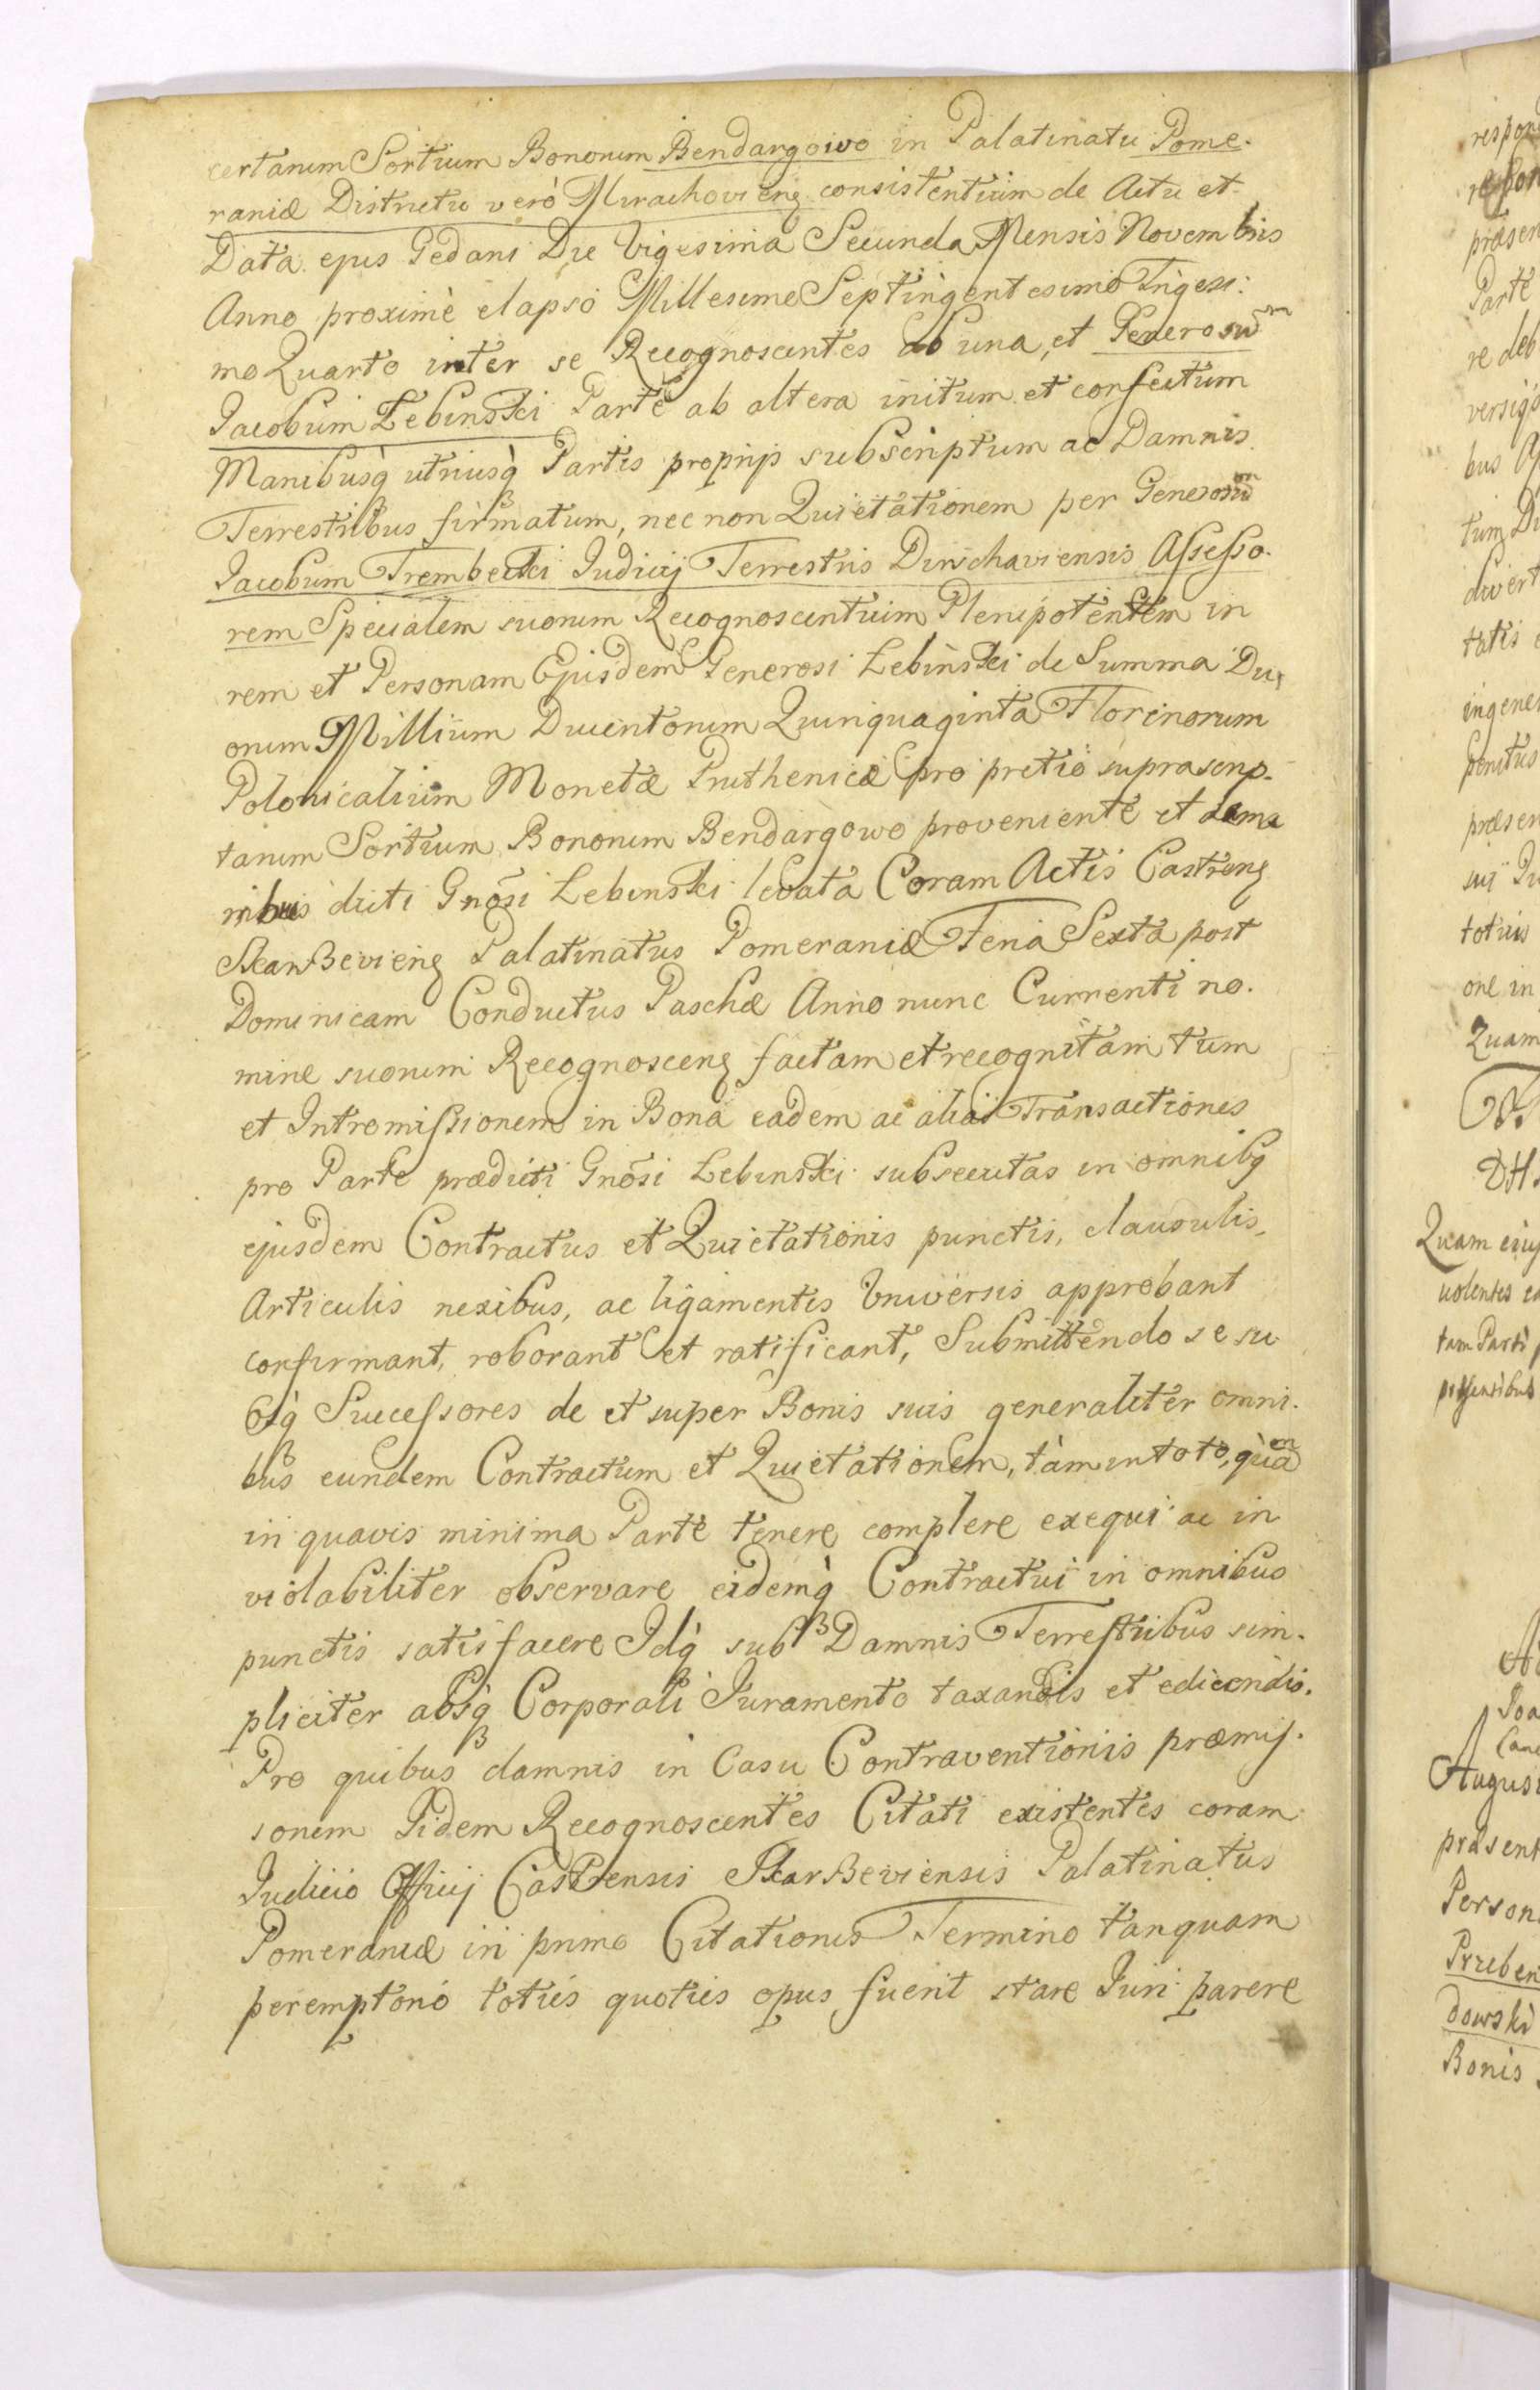 certarum Sortium Bonorum Bendargowo in Palatinatu Pome-
raniæ Districtu verò Mirachovieñ consistentium de Actu et
Data ejus Gedani Die Vigesima Secunda Mensis Novembris
Anno proximè elapso Millesimo Septingentesimo Trigesi:
mo Quarto inter se Recognoscentes ab una, et Generosũm
Jacobum Lebinski Parte ab altera initum et confectum
Manibusq̀ utriusq̀ Partis proprijs subscriptum ac Damnis
Terrestribus firmatum, nec non Quietationem per Generosũm
Jacobum Trembecki Judicij Terrestris Dirschaviensis Assesso-
rem Specialem suorum Recognoscentium Plenipotentem in
rem et Personam Ejusdem Generosi Lebinski de Summa Du,
orum Millium Ducentorum Quinquaginta Florenorum
Polonicalium Monetæ Pruthenicæ pro pretio suprascrip-
tarum Sortium Bonorum Bendargowo proveniente et dema
nibus dicti Gnõsi Lebinski levata Coram Actis Castrenß
Skarszevienß Palatinatus Pomeraniæ Feria Sexta post
Dominicam Conductus Paschæ Anno nunc Currenti no-
mine suorum Recognoscenß factam et recognitam tum
et Intromissionem in Bona eadem ac alias Transactiones
pro Parte prædicti Gnõsi Lebinski subsecutas in omnibq
ejusdem Contractus et Quietationis punctis, clausulis,
Articulis nexibus, ac ligamentis Universis approbant
confirmant, roborant et ratificant, Submittendo se su
osq̀ Successores de et super Bonis suis generaliter omni-
bus eundem Contractum et Quietationem, tàm in toto, quàm
in quavis minima Parte tenere complere exequi ac in
violabiliter observare eidemq̀ Contractui in omnibus
punctis satisfacere Idq̀ sub Damnis Terrestribus sim-
pliciter absq̀ Corporali Juramento taxandis et edicendis.
Pro quibus damnis in Casu Contraventionis præmis-
sorum Iidem Recognoscentes Citati existentes coram
Judicio Officij Castrensis Skarszeviensis Palatinatus
Pomeraniæ in primo Citationis Termino tanquam
peremptorio totiés quoties opus fuerit stare Juri parere
respon
præsen
Parte
re deb
versiq̀
bus
tum
divert
tatis
ingener
penitus
præsen
sui
totius
one in
Quam
Quam
volentes
tum Parti
Augus
præsent
Person
Przeben
dowski
Bonis